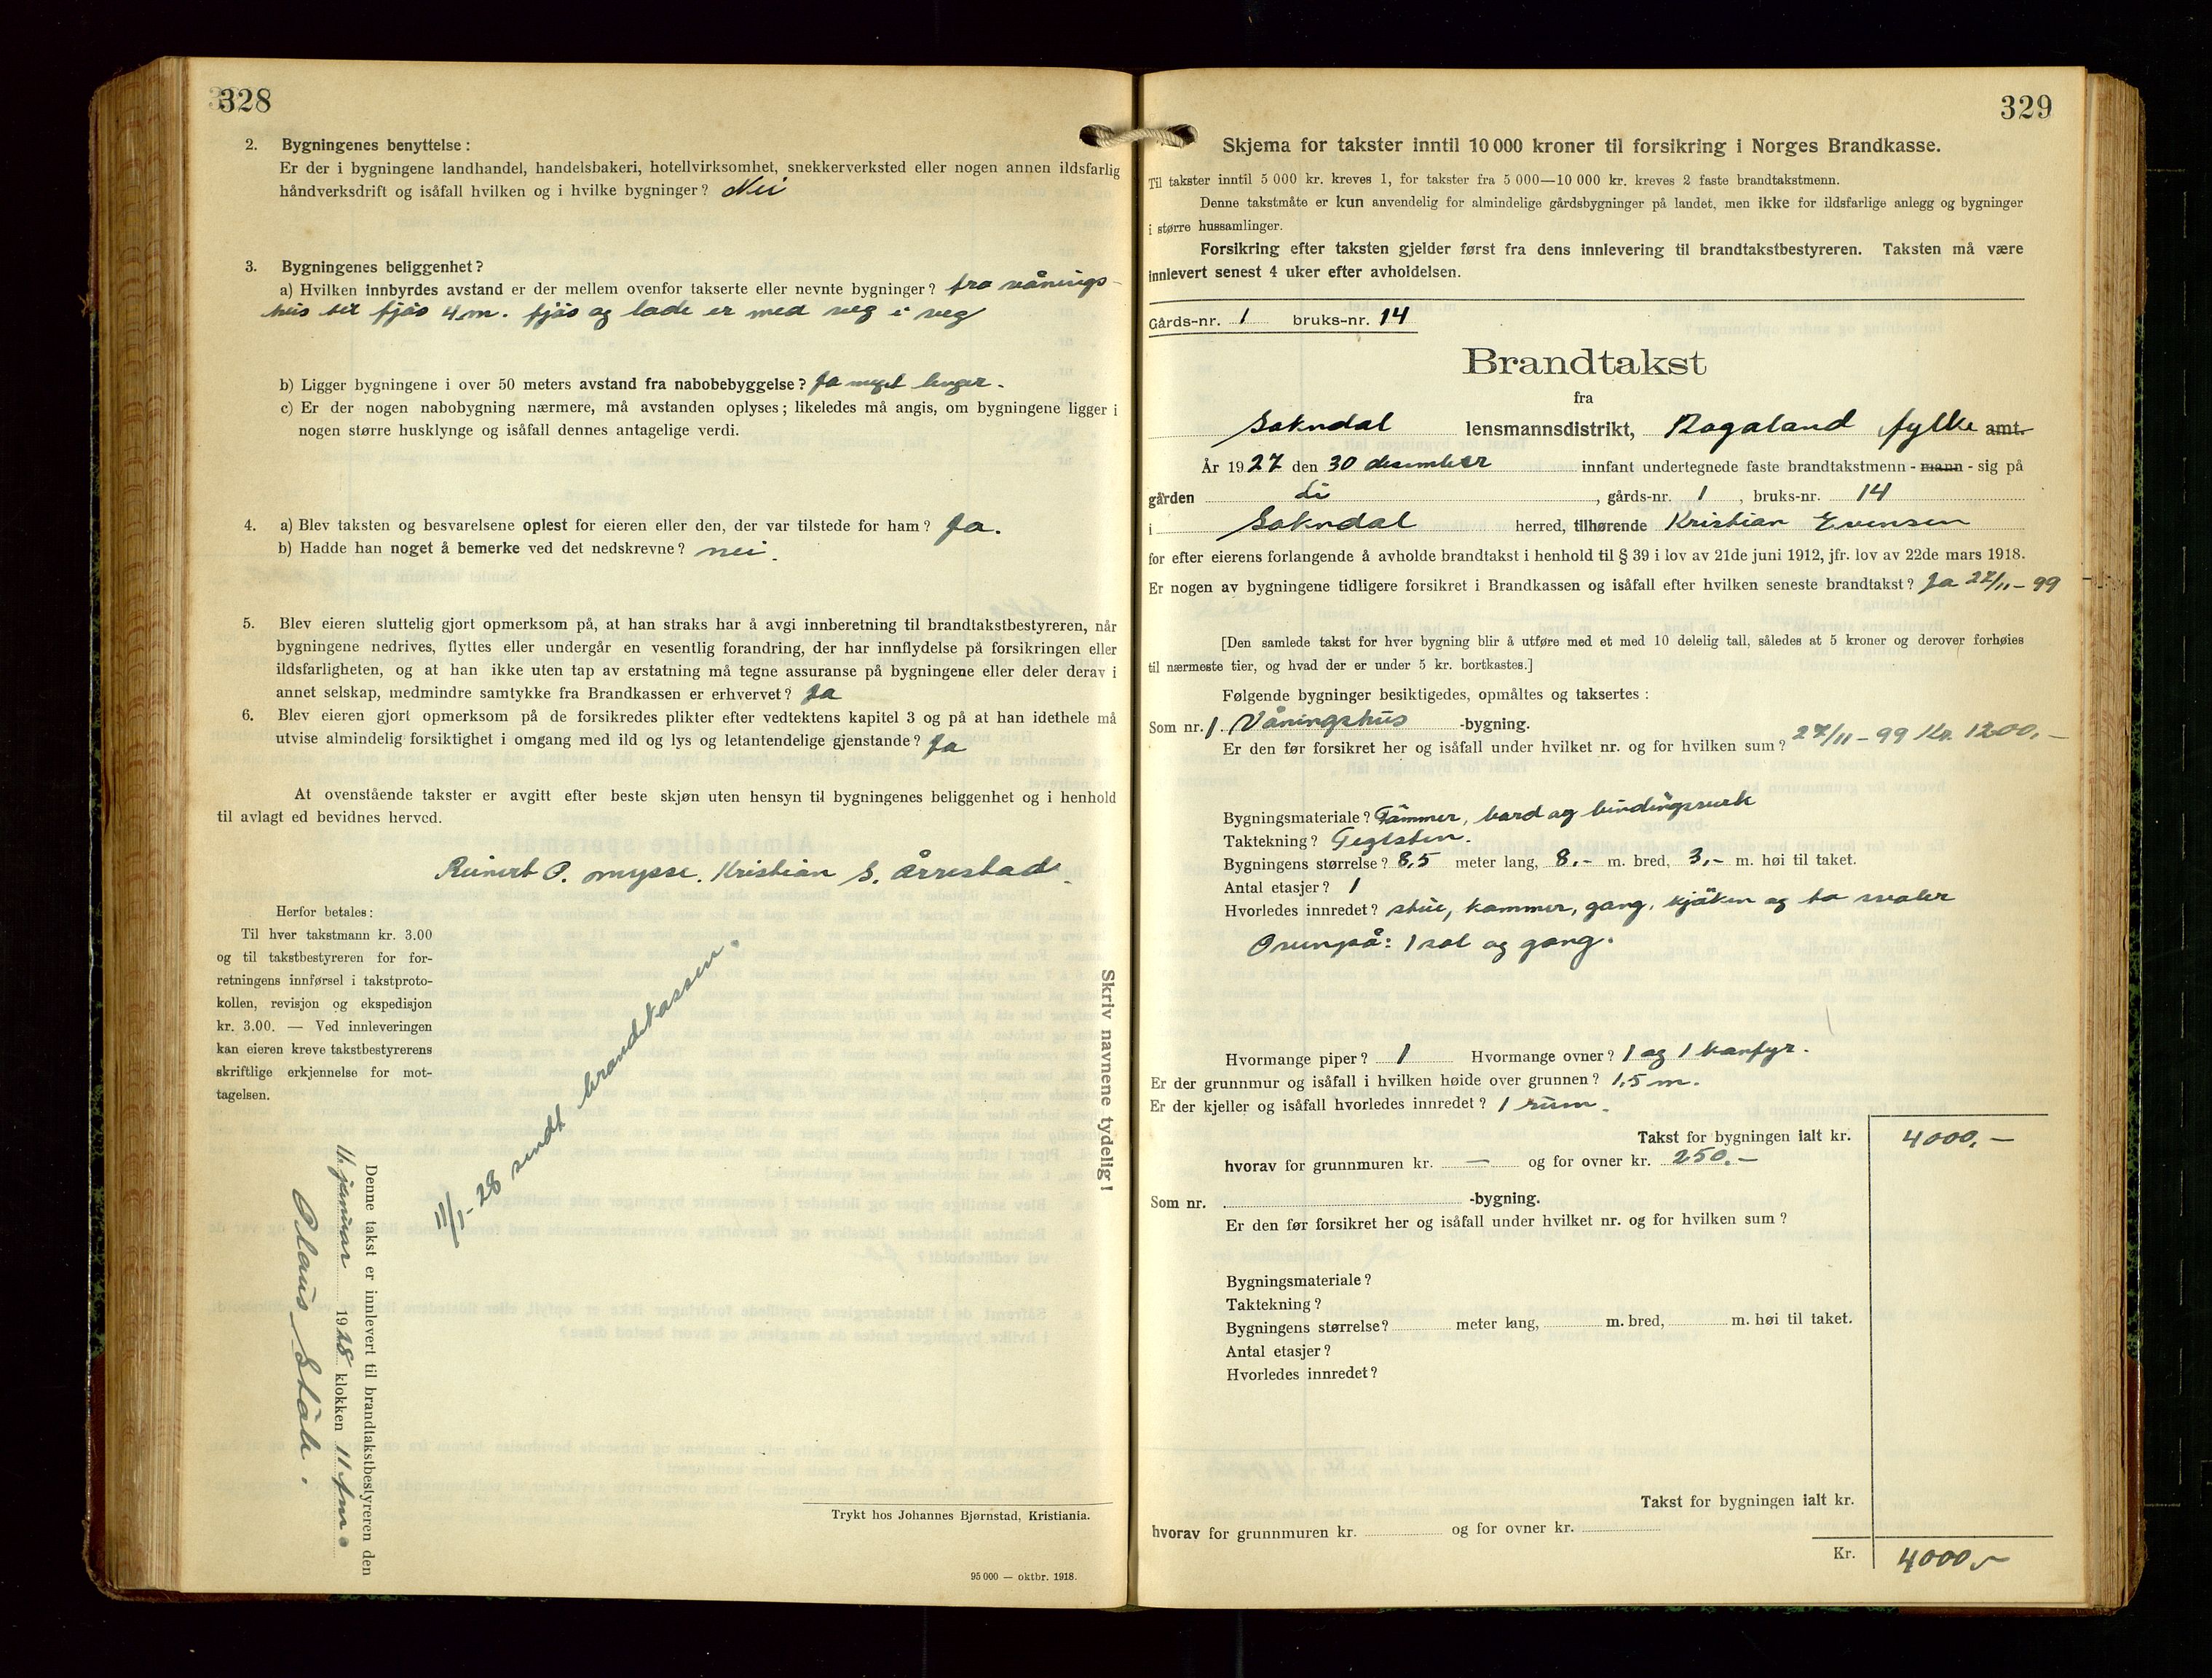 328
2. Bygningenes benyttelse:
Er der i bygningene landhandel, handelsbakeri, hotellvirksomhet, snekkerverksted eller nogen annen ildsfarlig
håndverksdrift og isåfall hvilken og i hvilke bygninger? Nei
3. Bygningenes beliggenhet?
a) Hvilken innbyrdes avstand er der mellem ovenfor takserte eller nevnte bygninger? fra vånings-
hus til fjøs 4 m. fjøs og lade er med veg i veg
b) Ligger bygningene i over 50 meters avstand fra nabobebyggelse? Ja meget lenger.
c) Er der nogen nabobygning nærmere, må avstanden oplyses; likeledes må angis, om bygningene ligger i
nogen større husklynge og isåfall dennes antagelige verdi.
4. a) Blev taksten og besvarelsene oplest for eieren eller den, der var tilstede for ham? Ja.
b) Hadde han noget å bemerke ved det nedskrevne? nei.
5. Blev eieren sluttelig gjort opmerksom på, at han straks har å avgi innberetning til brandtakstbestyreren, når
bygningene nedrives, flyttes eller undergår en vesentlig forandring, der har innflydelse på forsikringen eller
ildsfarligheten, og at han ikke uten tap av erstatning må tegne assuranse på bygningene eller deler derav i
annet selskap, medmindre samtykke fra Brandkassen er erhvervet? Ja
6. Blev eieren gjort opmerksom på de forsikredes plikter efter vedtektens kapitel 3 og på at han idethele må
utvise almindelig forsiktighet i omgang med ild og lys og letantendelige gjenstande? Ja
At ovenstående takster er avgitt efter beste skjøn uten hensyn til bygningenes beliggenhet og i henhold
til avlagt ed bevidnes herved.
Reinert P. Mysse. Kristian S. Årrestad.
Herfor betales:
Til hver takstmann kr. 3.00
og til takstbestyreren for for-
retningens innførsel i takstproto-
kollen, revisjon og ekspedisjon
kr. 3.00. — Ved innleveringen
kan eieren kreve takstbestyrerens
skriftlige erkjennelse for mot-
tagelsen.
11/1-28 sendt brandkassen.
Skriv navnene tydelig!
Denne takst er innlevert til brandtakstbestyreren den
11. januar 1928 klokken 11 fm.
Olaus Ståle.
Trykt hos Johannes Bjørnstad, Kristiania.
95 000 — oktbr. 1918.
329
Skjema for takster inntil 10 000 kroner til forsikring i Norges Brandkasse.
Til takster inntil 5 000 kr. kreves 1, for takster fra 5 000—10 000 kr. kreves 2 faste brandtakstmenn.
Denne takstmåte er kun anvendelig for almindelige gårdsbygninger på landet, men ikke for ildsfarlige anlegg og bygninger
i større hussamlinger.
Forsikring efter taksten gjelder først fra dens innlevering til brandtakstbestyreren. Taksten må være
innlevert senest 4 uker efter avholdelsen.
Gårds-nr. 1 bruks-nr. 14
Brandtakst
fra
Sokndal lensmannsdistrikt, Rogaland fylke amt.
År 1927 den 30 desember innfant undertegnede faste brandtakstmenn - mann - sig på
gården Li, gårds-nr. 1, bruks-nr. 14
i Sokndal herred, tilhørende Kristian Evensen
for efter eierens forlangende å avholde brandtakst i henhold til § 39 i lov av 21de juni 1912, jfr. lov av 22de mars 1918.
Er nogen av bygningene tidligere forsikret i Brandkassen og isåfall efter hvilken seneste brandtakst? Ja 27/11-99
[Den samlede takst for hver bygning blir å utføre med et med 10 delelig tall, således at 5 kroner og derover forhøies
til nærmeste tier, og hvad der er under 5 kr. bortkastes.]
Følgende bygninger besiktigedes, opmåltes og taksertes:
Som nr. 1 Våningshus -bygning.
Er den før forsikret her og isåfall under hvilket nr. og for hvilken sum? 27/11-99 Kr. 1200,-
Bygningsmateriale? Tømmer, bord og bindingsverk
Taktekning? Teglsten.
Bygningens størrelse? 8,5 meter lang, 8,- m. bred, 3,- m. høi til taket.
Antal etasjer? 1
Hvorledes innredet? stue, kammer, gang, kjøken og to svaler
Ovenpå: 1 sal og gang.
Hvormange piper? 1 Hvormange ovner? 1 og 1 komfyr.
Er der grunnmur og isåfall i hvilken høide over grunnen? 1,5 m.
Er der kjeller og isåfall hvorledes innredet? 1 rum.
Takst for bygningen ialt kr. 4000,-
hvorav for grunnmuren kr. — og for ovner kr. 250.-
Som nr. -bygning.
Er den før forsikret her og isåfall under hvilket nr. og for hvilken sum?
Bygningsmateriale?
Taktekning?
Bygningens størrelse? meter lang, m. bred, m. høi til taket.
Antal etasjer?
Hvorledes innredet?
Takst for bygningen ialt kr.
hvorav for grunnmuren kr. og for ovner kr.
Kr. 4000,-